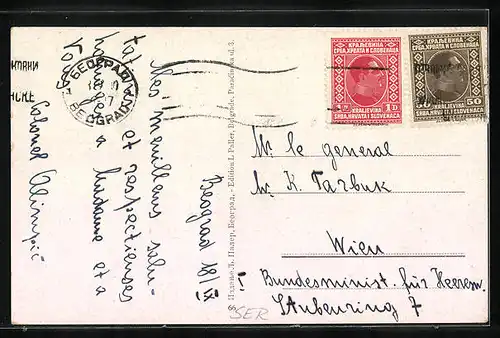 Mes meilleurs salu-
tat et respectieuses
hommages a
Madame et a
Vous
Colonel Olimpić
Beograd 18/IX
БЕОГРАД
BEOGRAD
НСКЕ
66 Издање Л. Палер, Београд. - Edition L. Paller, Belgrade,
КРАЉЕВИНА
СРБА, ХРВАТА И СЛОВЕНАЦА
1 D
KRALJEVINA
SRBA, HRVATA I SLOVENACA
КРАЉЕВИНА
СРБА, ХРВАТА И СЛОВЕНАЦА
50 50
KRALJEVINA
SRBA, HRVATA I SLOVENACA
Mr. le general
Mr. K. Tarbuk
Wien
I
Bundesminist. für Heeresw.
Stubenring 7
SER